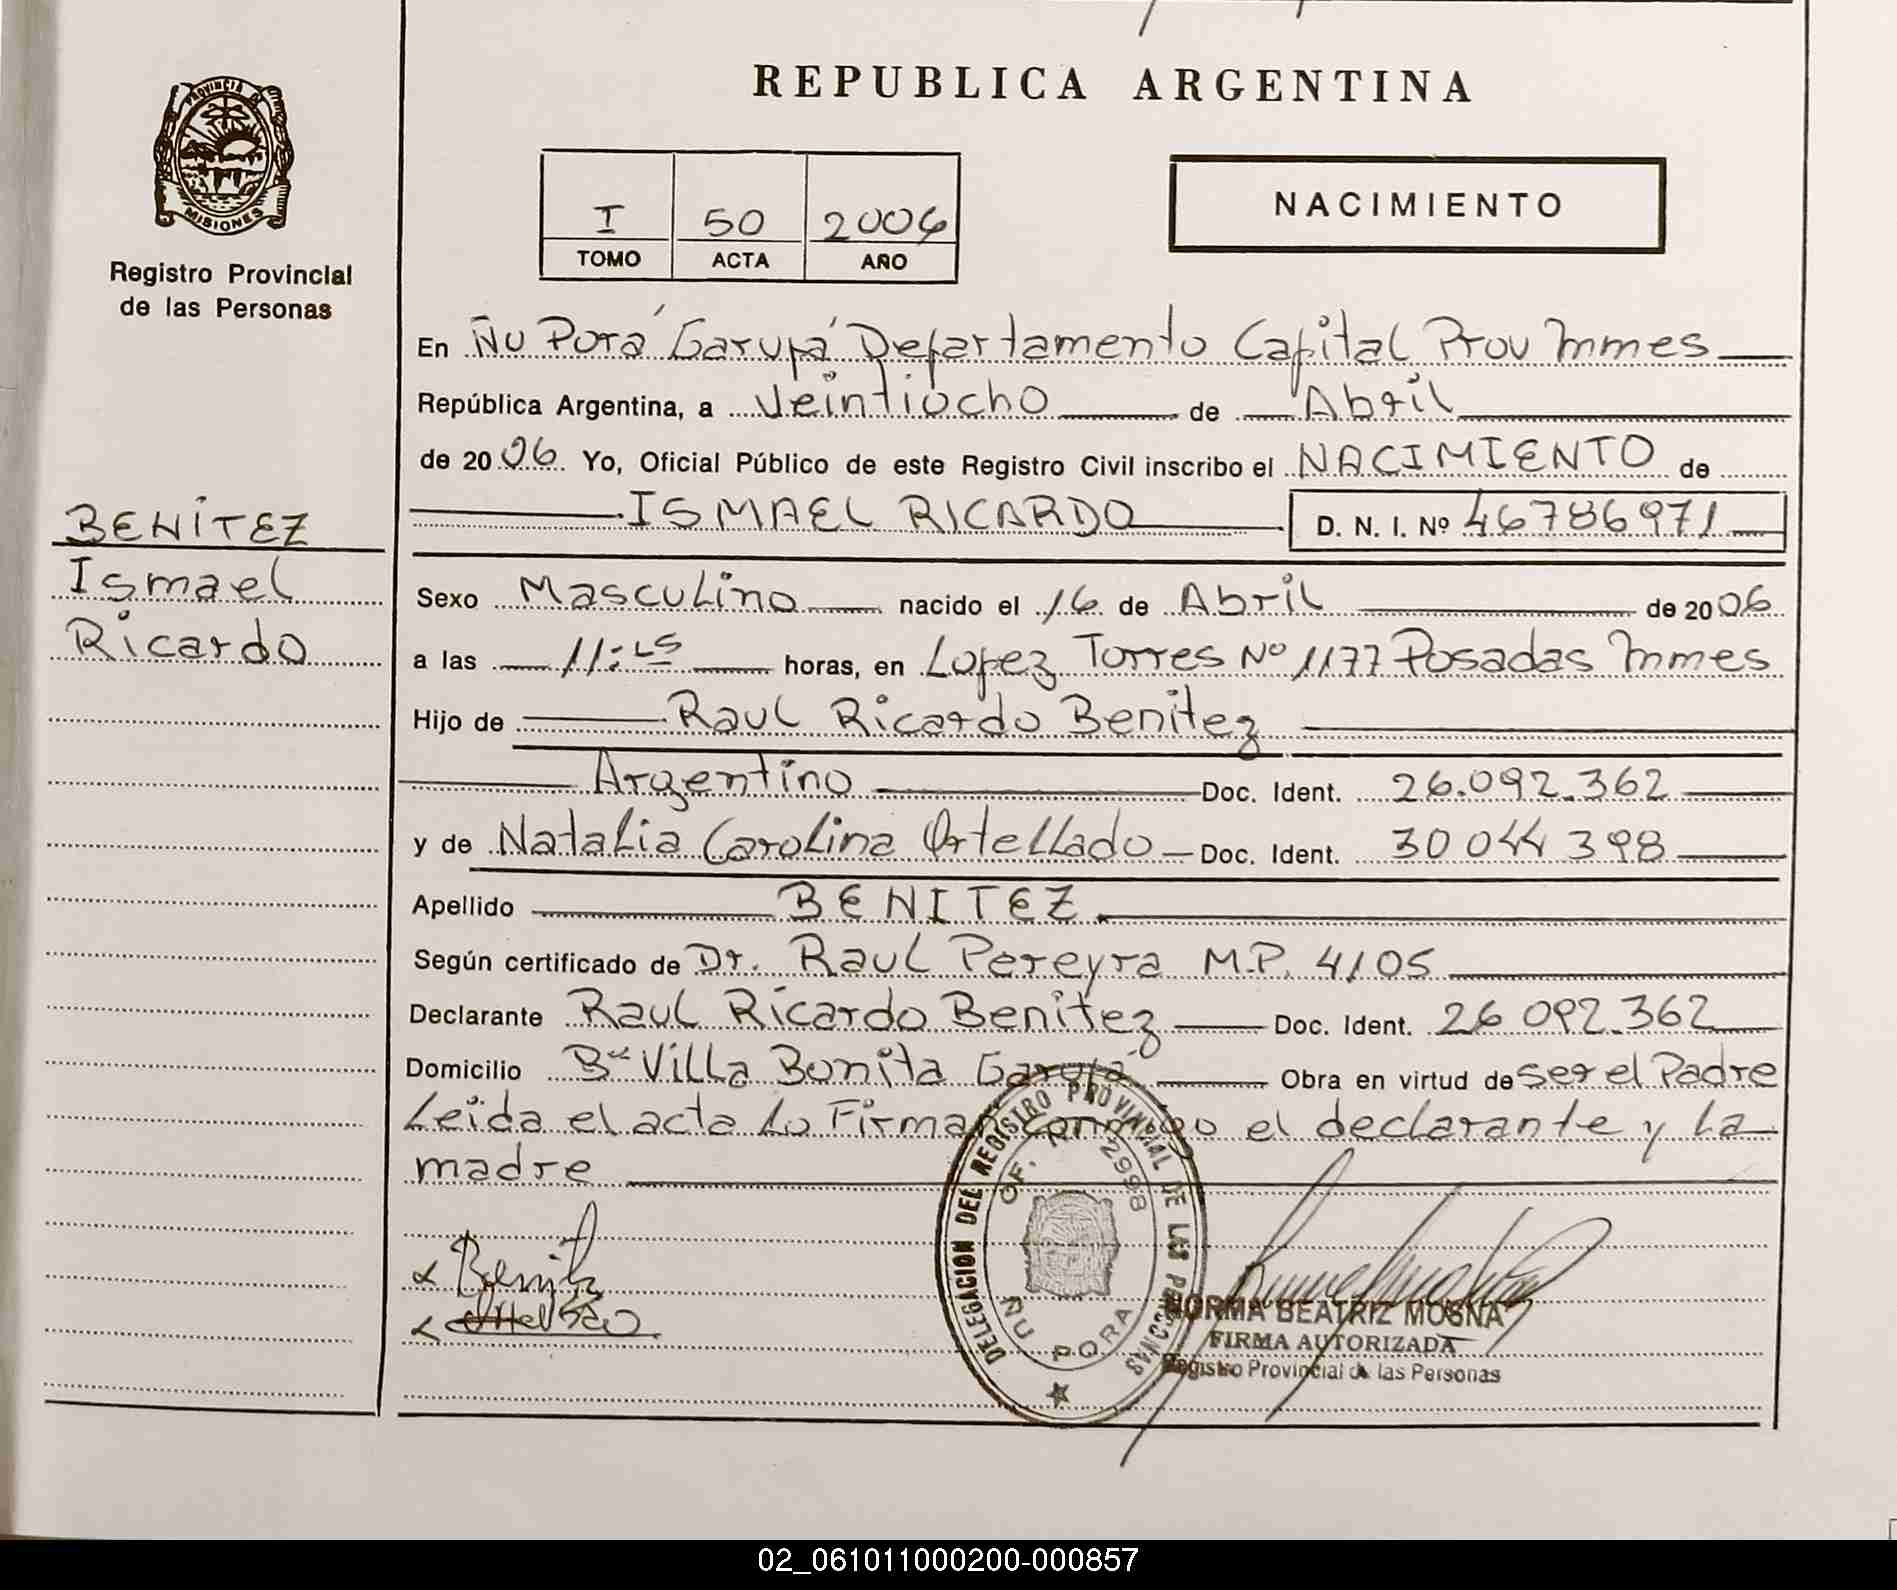 REPUBLICA ARGENTINA
PROVINCIA DE
MISIONES
Registro Provincial
de las Personas
I 50 2006
TOMO ACTA AÑO
NACIMIENTO
En Ñu Porá Garupá Departamento Capital Prov Mnes
República Argentina, a Veintiocho de Abril
de 2006 Yo, Oficial Público de este Registro Civil inscribo el NACIMIENTO de
ISMAEL RICARDO D. N. I. Nº 46786971
BENÍTEZ
Ismael
Ricardo
Sexo Masculino nacido el 16 de Abril de 2006
a las 11:45 horas, en Lopez Torres Nº 1177 Posadas Mnes
Hijo de Raul Ricardo Benitez
Argentino Doc. Ident. 26.092.362
y de Natalia Carolina Ortellado Doc. Ident. 30 044 398
Apellido BENITEZ
Según certificado de Dr. Raul Pereyra M.P. 4105
Declarante Raul Ricardo Benitez Doc. Ident. 26 092.362
Domicilio Bº Villa Bonita Garupá Obra en virtud de ser el Padre
Leida el acta Lo Firman conmigo el declarante y La
madre
Benitez
DELEGACION DEL REGISTRO PROVINCIAL DE LAS PERSONAS
OF. 2998
ÑU PORA
NORMA BEATRIZ MOSNA
FIRMA AUTORIZADA
Registro Provincial de las Personas
02_061011000200-000857